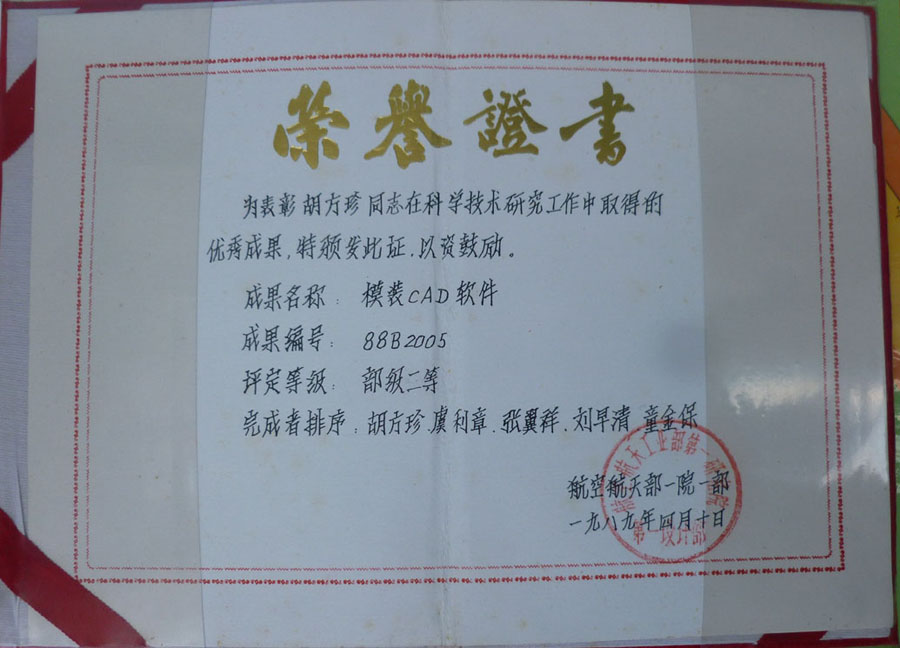 榮譽證書
为表彰胡方珍同志在科学技术研究工作中取得的
优秀成果,特颁发此证,以资鼓励。
成果名称:模装CAD软件
成果编号:88B2005
评定等级:部级二等
完成者排序:胡方珍.虞利章.张翼祥.刘早清 童金保
航空航天部一院一部
一九八九年四月十日
航天工业部第一研究院
第一设计部